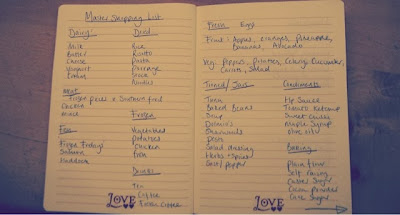 Master Shopping List
Dairy:
Milk
Butter
Cheese
Yogurt
Dried
Rice
Risotto
Pasta
Porridge
Noodles
Meat
Chicken
Mince
Frozen
Vegetables
Potatoes
Chicken
Fish
Salmon
Haddock
Drinks
Tea
Coffee
LOVE
Fresh Eggs
Fruit: Apples, Oranges, Pineapple,
Bananas, Avocado
Veg: Peppers, Potatoes, Celery, Cucumber,
Carrots, Salad
Tinned/Jars
Tuna
Baked Beans
Soup
Dolmio's
Sharwoods
Pesto
Salad dressing
Herbs + Spices
Salt/pepper
Condiments
Hp Sauce
Tomato Ketchup
Sweet Chilli
Maple Syrup
Olive Oil
Baking
Plain flour
Self raising
Caster Sugar
Cocoa Powder
LOVE